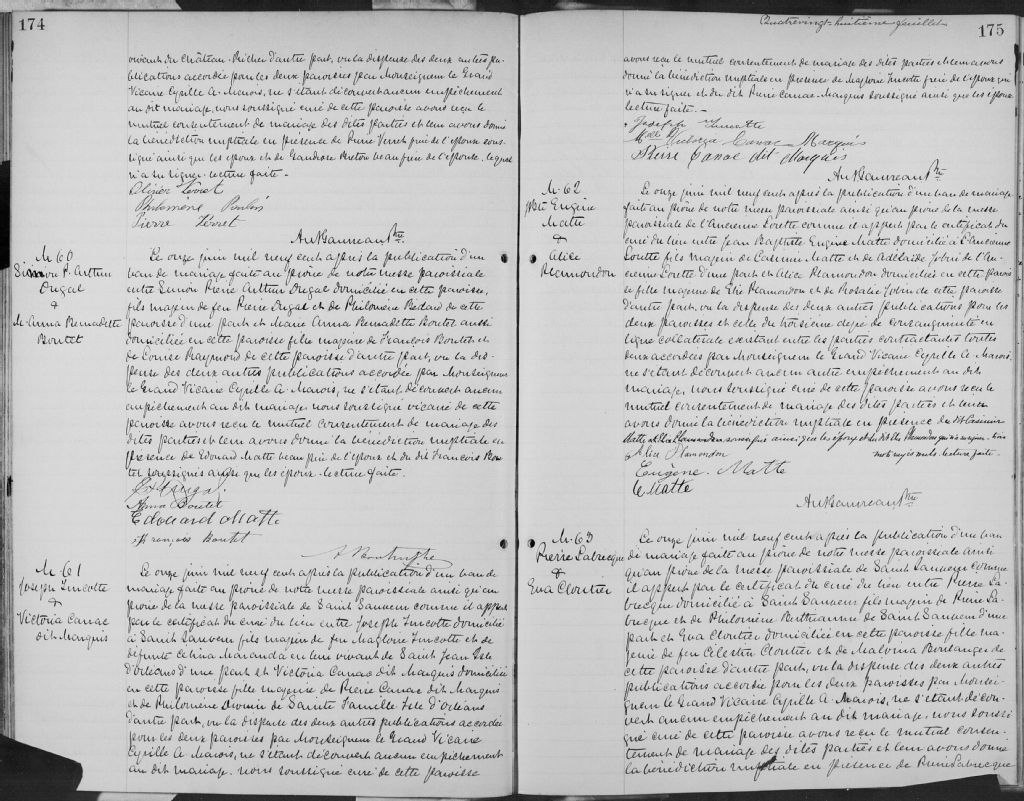 174
vivant du Château-Richer d'autre part, vu la dispense des deux autres pu-
blications accordée pour les deux paroisses par Monseigneur le Grand
Vicaire Cyrille A. Marois, ne s'étant découvert aucun empêchement
au dit mariage, nous soussigné curé de cette paroisse avons reçu le
mutuel consentement de mariage des dites parties et leur avons donné
la bénédiction nuptiale en présence de Pierre Verret frère de l'époux sous-
signé ainsi que les époux et de beau frère de l'épouse, lequel
n'a su signer. Lecture faite.
Olivier Verret
Philomène
Pierre Verret
Ant Gauvreau Ptre
M-60
Simon P. Arthur
Dugal
&
M. Anna Bernadette
Boutet
Le onze juin mil neuf cent après la publication d'un
ban de mariage faite au prône de notre messe paroissiale
entre Simon Pierre Arthur Dugal domicilié en cette paroisse,
fils majeur de feu Pierre Dugal et de Philomène Bedard de cette
paroisse d'une part et Marie Anna Bernadette Boutet aussi
domiciliée en cette paroisse fille majeure de François Boutet et
de Louise Raymond de cette paroisse d'autre part, vu la dis-
pense des deux autres publications accordée par Monseigneur
le Grand Vicaire Cyrille A. Marois, ne s'étant découvert aucun
empêchement au dit mariage nous soussigné vicaire de cette
paroisse avons reçu le mutuel consentement de mariage des
dites parties et leur avons donné la bénédiction nuptiale en
présence de Edouard Matte beau frère de l'époux et du dit François Bou-
tet soussignés ainsi que les époux. Lecture faite.
Anna Boutet
Edouard Matte
François Boutet
M-61
Joseph Turcotte
&
Victoria Canac
dit Marquis
Le onze juin mil neuf cent après la publication d'un ban de
mariage faite au prône de notre messe paroissiale ainsi qu'au
prône de la messe paroissiale de Saint Sauveur comme il appert
par le certificat du curé du lieu entre Joseph Turcotte domicilié
à Saint Sauveur fils majeur de feu Magloire Turcotte et de
défunte Celina Maranda en leur vivant de Saint Jean Isle
d'Orléans d'une part et Victoria Canac dit Marquis domiciliée
en cette paroisse fille majeure de Pierre Canac dit Marquis
et de Philomène Drouin de Sainte Famille Isle d'Orléans
d'autre part, vu la dispense des deux autres publications accordée
pour les deux paroisses par Monseigneur le Grand Vicaire
Cyrille A. Marois, ne s'étant découvert aucun empêchement
au dit mariage, nous soussigné curé de cette paroisse
Quatrevingt-huitième feuillet
175
avons reçu le mutuel consentement de mariage des dites parties et leur avons
donné la bénédiction nuptiale en présence de Magloire Turcotte frère de l'époux qui
n'a su signer et du dit Pierre Canac-Marquis soussigné ainsi que les époux.
Lecture faite.-
Joseph Turcotte
Victoria Canac Marquis
Pierre Canac dit Marquis
Ant Gauvreau Ptre
M-62
Jn Bte Eugène
Matte
&
Alice
Plamondon
Le onze juin mil neuf cent après la publication d'un ban de mariage
faite au prône de notre messe paroissiale ainsi qu'au prône de la messe
paroissiale de l'Ancienne Lorette comme il appert par le certificat du
curé du lieu entre Jean Baptiste Eugène Matte domicilié à l'Ancienne
Lorette fils majeur de Casimir Matte et de Adelaïde Jobin de l'An-
cienne Lorette d'une part et Alice Plamondon domiciliée en cette parois-
se fille majeure de Elie Plamondon et de Rosalie Jobin de cette paroisse
d'autre part, vu la dispense des deux autres publications pour les
deux paroisses et celle du troisième degré de consanguinité en
ligne collatérale existant entre les parties contractantes toutes
deux accordées par Monseigneur le Grand Vicaire Cyrille A. Marois,
ne s'étant découvert aucun autre empêchement au dit
mariage, nous soussigné curé de cette paroisse avons reçu le
mutuel consentement de mariage des dites parties et leur
avons donné la bénédiction nuptiale en présence du dit Casimir
Matte soussigné ainsi que les époux et du dit Elie Plamondon qui n'a su signer.
Lecture faite.
Alice Plamondon
Eugène Matte
C Matte
Ant Gauvreau Ptre
M-63
Pierre Labrecque
&
Eva Cloutier
Le onze juin mil neuf cent après la publication d'un ban
de mariage faite au prône de notre messe paroissiale ainsi
qu'au prône de la messe paroissiale de Saint Sauveur comme
il appert par le certificat du curé du lieu entre Pierre La-
brecque domicilié à Saint Sauveur fils majeur de Pierre La-
brecque et de Philomène Berthiaume de Saint Sauveur d'une
part et Eva Cloutier domiciliée en cette paroisse fille ma-
jeure de feu Célestin Cloutier et de Malvina Boulanger de
cette paroisse d'autre part, vu la dispense des deux autres
publications accordée pour les deux paroisses par Monsei-
gneur le Grand Vicaire Cyrille A. Marois, ne s'étant décou-
vert aucun empêchement au dit mariage, nous soussi-
gné curé de cette paroisse avons reçu le mutuel consen-
tement de mariage des dites parties et leur avons donné
la bénédiction nuptiale en présence de Pierre Labrecque